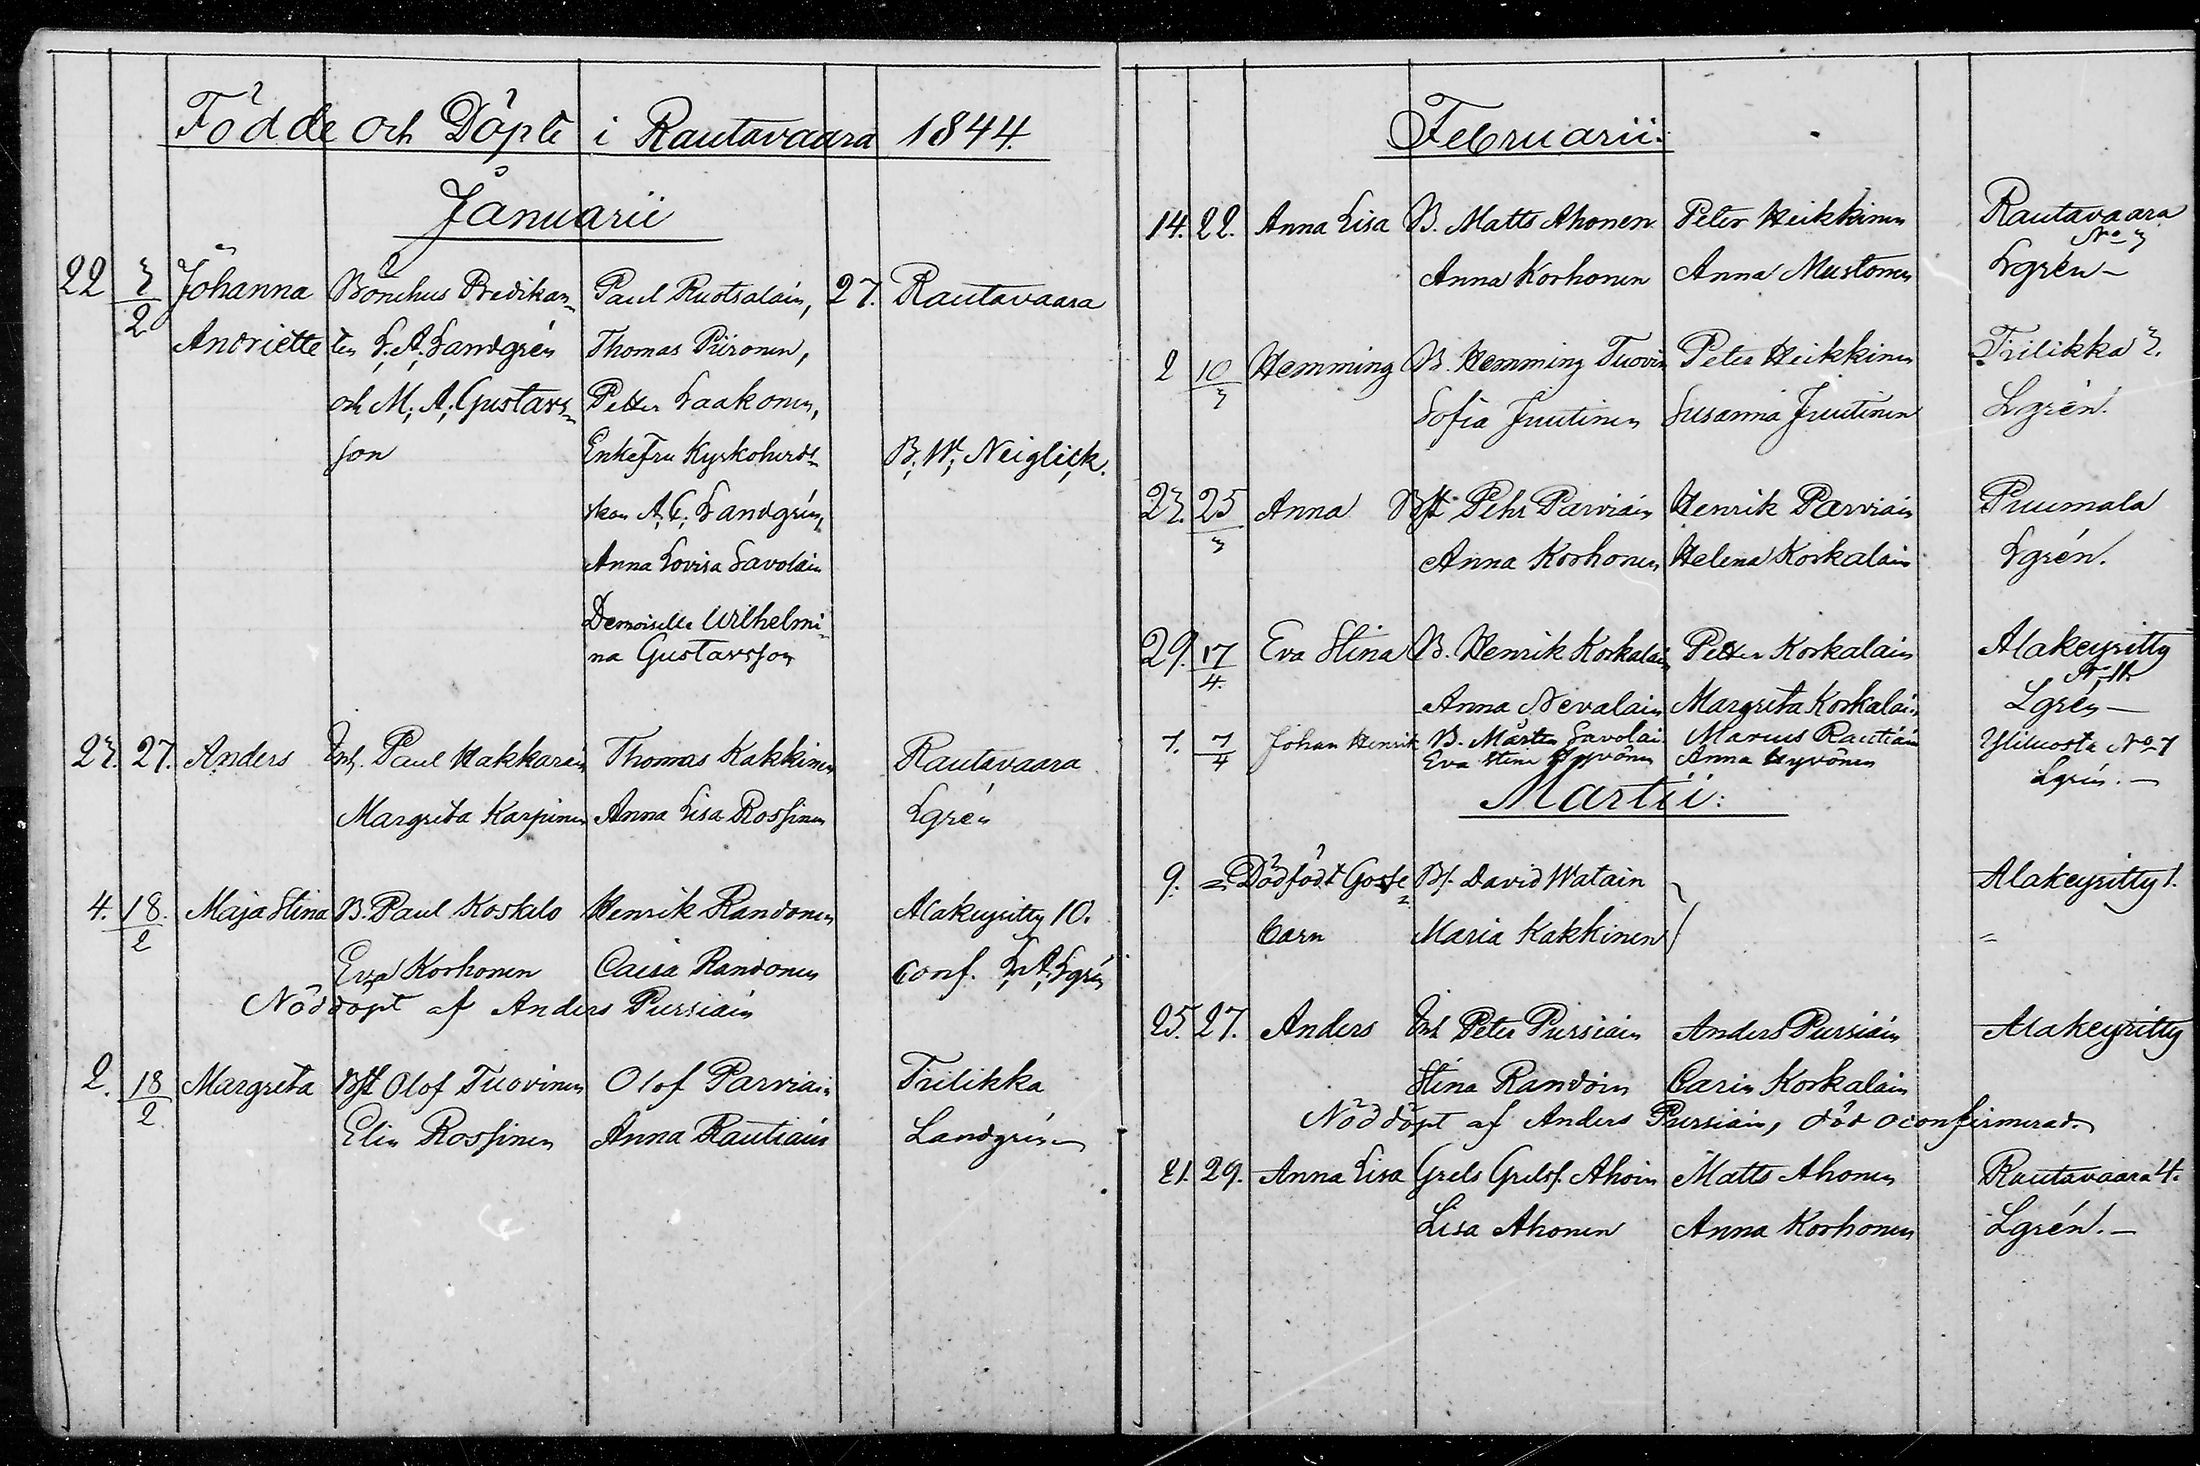 Födde och Döpte i Rautavaara 1844.
Januarii
22 3/2 Johanna Bönehus Predikan= Paul Ruotsalain, 27. Rautavaara
Andriette ten L. A. Landgrén Thomas Piironen,
och M. A. Gustavs= Petter Laakonen,
son Enkefru Kyrkoherds= B. W. Neiglick.
skan A. C. Landgrén,
Anna Lovisa Savolain
Demoiselle Wilhelmi=
na Gustavsson
23. 27. Anders Inh. Paul Hakkarain Thomas Kakkinen Rautavaara
Margreta Karpinen Anna Lisa Rossinen Lgrén
4. 18/2 Maja Stina B. Paul Koskelo Henrik Randonen Alakeyritty 10.
Eva Korhonen Caisa Randonen Conf. L. A. Lgrén
Nöddöpt af Anders Pursiain
2. 18/2 Margreta Bst Olof Tuovinen Olof Parviain Tiilikka
Elin Rossinen Anna Rautiain Landgrén
Februarii:
14. 22. Anna Lisa B. Matts Ahonen Peter Heikkinen Rautavaara
No 3
Anna Korhonen Anna Mustonen Lgrén
2 10/3 Hemming B. Hemming Tuovin Peter Heikkinen Tiilikka 3.
Sofia Juutinen Susanna Juutinen Lgrén.
23. 25/3 Anna Bst Pehr Parviain Henrik Parviain Puumala
Anna Korhonen Helena Korkalain Lgrén.
29. 17/4. Eva Stina B. Henrik Korkalain Petter Korkalain Alakeyritty
N. 11.
Anna Nevalain Margreta Korkalain Lgrén
7. 7/4 Johan Henrik B. Mårten Savolai. Marcus Rautiain Yliluosta No 7
Eva Stina Hyvönen Anna Hyvönen Lgrén.
Martii:
9. = Dödfödt Gosse Bs. David Watain Alakeyritty 1.
barn Maria Kakkinen =
25. 27. Anders Inh Peter Pursiain Anders Pursiain Alakeyritty
Stina Randoin Carin Korkalain
Nöddöpt af Anders Pursiain, död oconfirmerad.
21. 29. Anna Lisa Grels Grelss. Ahoin Matts Ahonen Rautavaara 4.
Lisa Ahonen Anna Korhonen Lgrén.